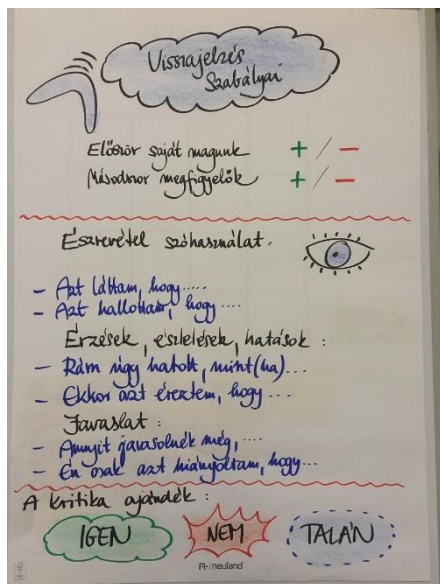 Visszajelzés
Szabályai
Először saját magunk + / -
Másodszor megfigyelők + / -
Észrevétel szóhasználat:
- Azt láttam, hogy....
- Azt hallottam, hogy....
Érzések, észlelések, hatások:
- Rám úgy hatott, mint(ha)...
- Ekkor azt éreztem, hogy...
Javaslat:
- Annyit javasolnék még,....
- Én csak azt hiányoltam, hogy...
A kritika ajándék:
IGEN NEM TALÁN
neuland